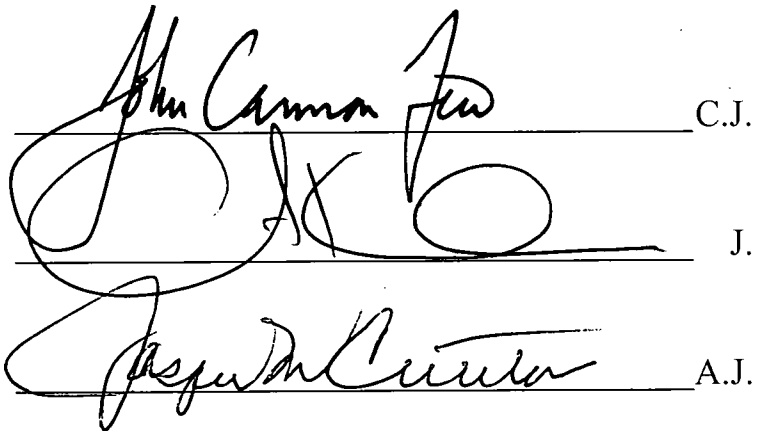 John Cannon Few C.J.
J.
Jasper M. Cureton A.J.